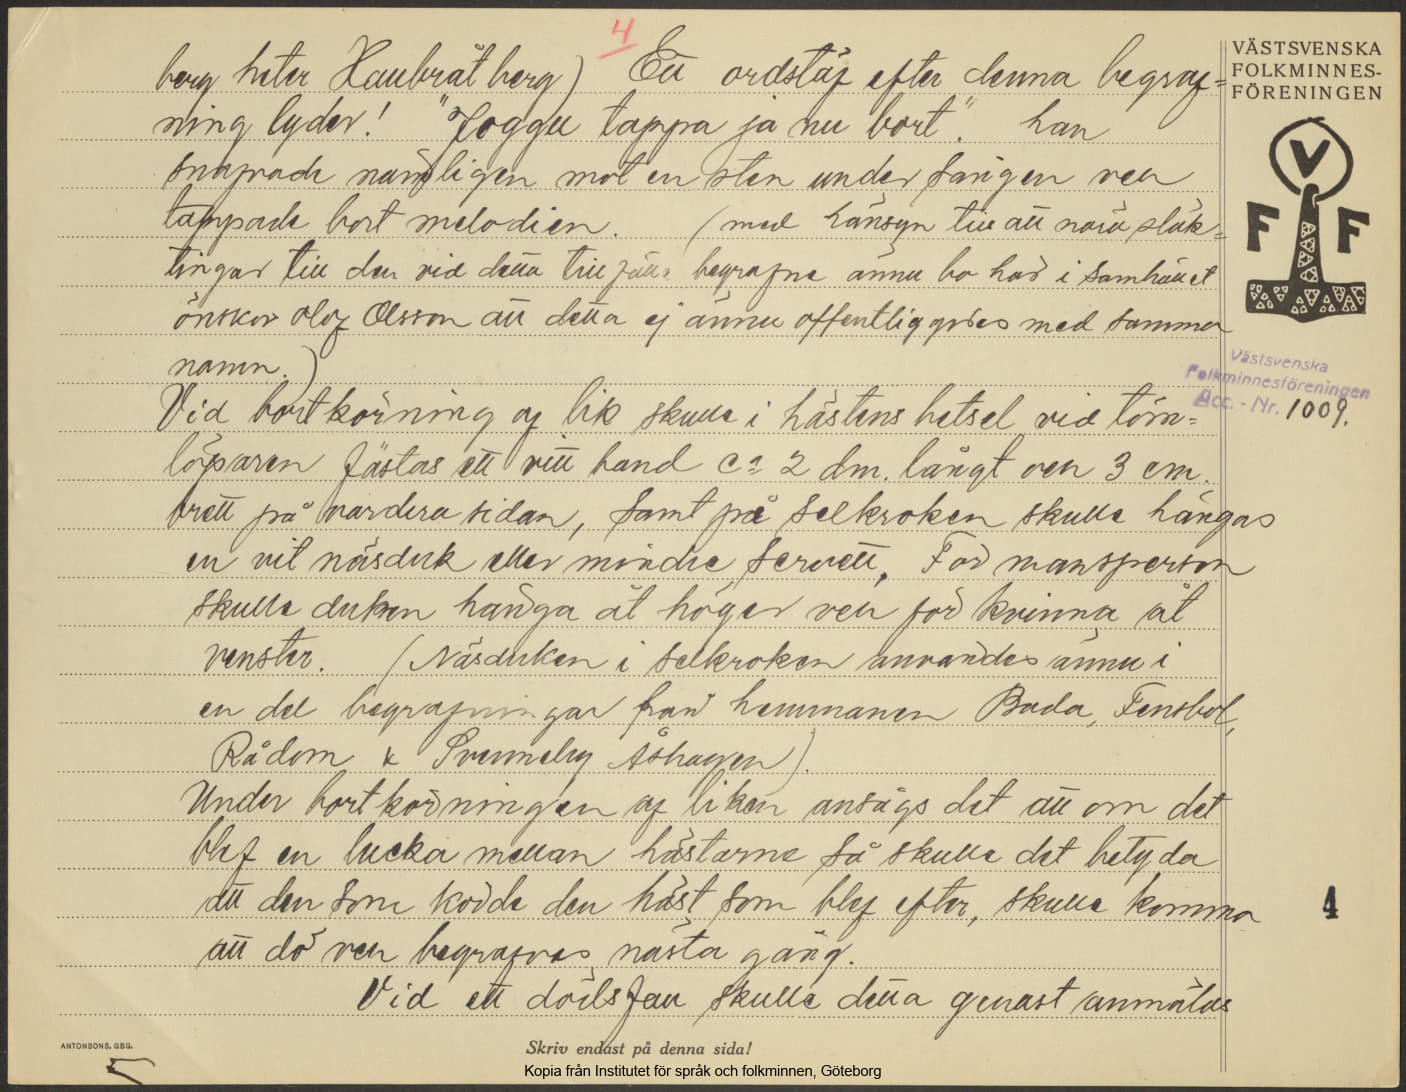 4
berg heter Haubråtberg) Ett ordstäf efter denna begraf=
ning lyder! "Joggu tappa ja nu bort". han
snafvade nämligen mot en sten under sången och
tappade bort melodien. (med hänsyn till att nära släk=
tingar till den vid detta tillfälle begrafne ännu bo här i samhället
önskar Olof Olsson att detta ej ännu offentliggöres med samma
namn.)
Vid bortkörning af lik skulle i hästens betsel vid töm=
löparen fästas ett vitt band ca 2 dm. långt och 3 cm.
brett på vardera sidan, samt på selkroken skulle hängas
en vit näsduk eller mindre servett. För mansperson
skulle duken hänga åt höger och för kvinna åt
venster. (Näsduken i selkroken användes ännu i
en del begrafningar från hemmanen Bada, Fensbol,
Rådom & Svenneby Åshagen).
Under bortkörningen af liken ansågs det att om det
blef en lucka mellan hästarne så skulle det betyda
att den som körde den häst som blef efter, skulle komma
att dö och begrafvas nästa gång.
Vid ett dödsfall skulle detta genast anmälas
VÄSTSVENSKA
FOLKMINNES-
FÖRENINGEN
V
F F
Västsvenska
Folkminnesföreningen
Acc. - Nr. 1009.
4
ANTONSONS, GBG.
Skriv endast på denna sida!
5
Kopia från Institutet för språk och folkminnen, Göteborg